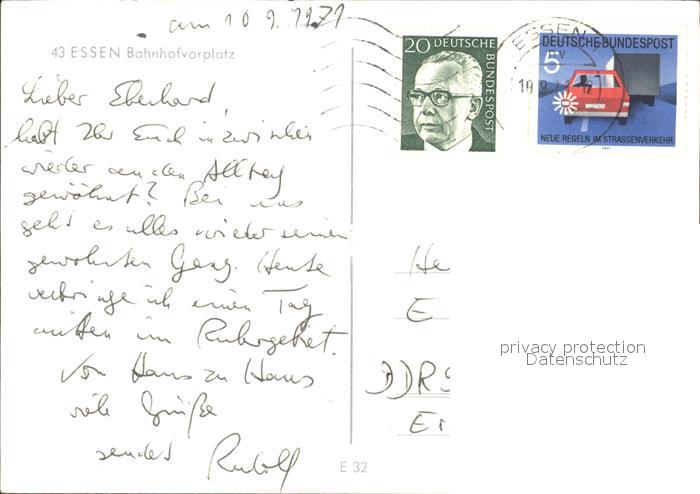 am 10.9.1971
43 ESSEN Bahnhofvorplatz
Lieber Eberhard,
habt Ihr Euch inzwischen
wieder an den Alltag
gewöhnt? Bei uns
geht es alles wieder seinen
gewohnten Gang. Heute
verbringe ich einen Tag
mitten im Ruhrgebiet.
Von Haus zu Haus
viele Grüße
sendet Rudolf
E 32
20 DEUTSCHE BUNDESPOST
DEUTSCHE BUNDESPOST
5
NEUE REGELN IM STRASSENVERKEHR
1971
ESSEN
10.9.71
He
E
DDR
privacy protection
Datenschutz